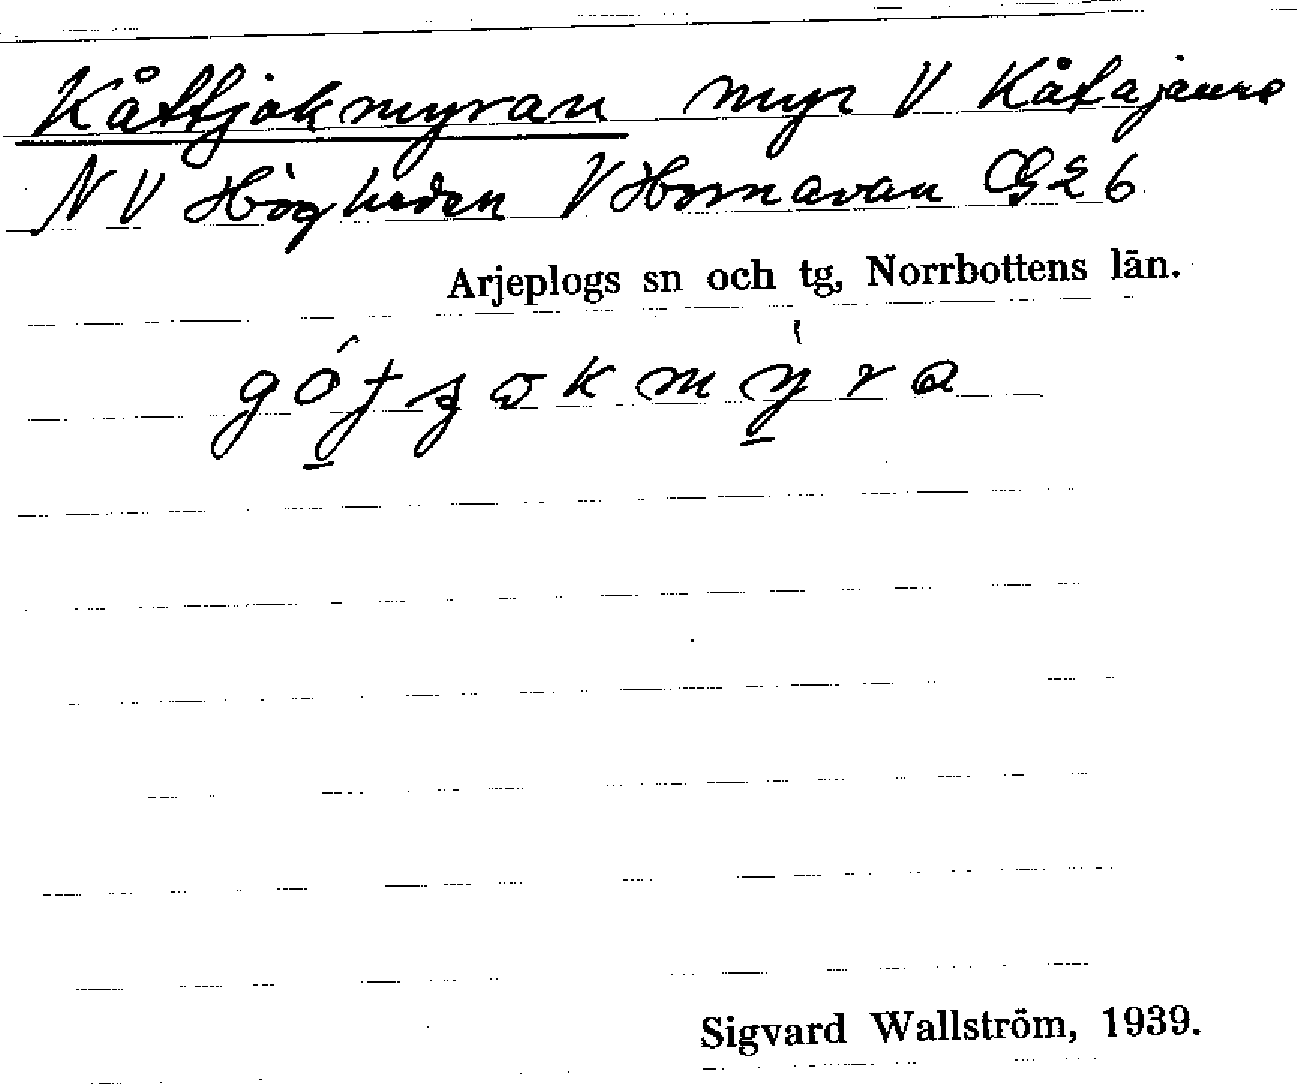 Kåttjokmyran myr V Kåtajaure
NV Högheden V Hornavan GE6
Arjeplogs sn och tg, Norrbottens län.
Sigvard Wallström, 1939.